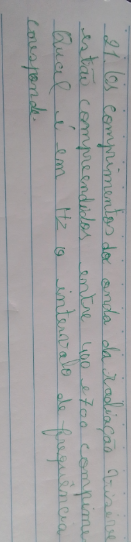 21. Os comprimentos do onda da radiação visível
estão compreendidos entre 400 e 700 comprime
Qual é em Hz o intervalo de frequência
corresponde.